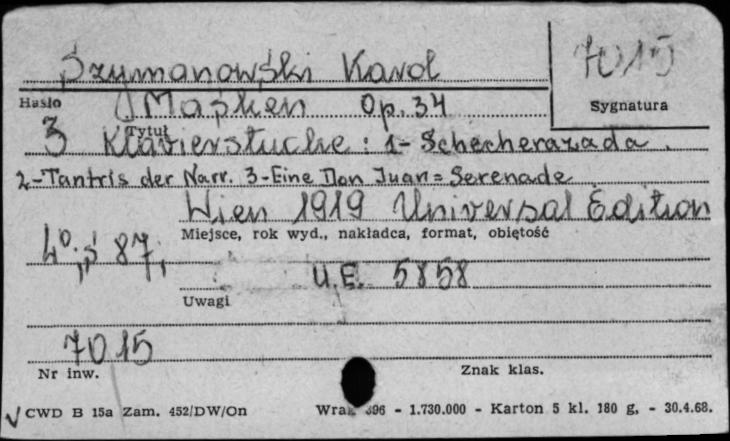 Szymanowski Karol
7015
Hasło
Masken Op. 34
Sygnatura
Tytuł
3 Klavierstucke : 1- Schecherazada.
2-Tantris der Narr. 3-Eine Don Juan = Serenade
Wien 1919 Universal Edition
Miejsce, rok wyd., nakładca, format, objętość
4°; s 87;
U.E. 5858
Uwagi
7015
Nr inw.
Znak klas.
CWD B 15a Zam. 452/DW/On
396 - 1.730.000 - Karton 5 kl. 180 g. - 30.4.68.